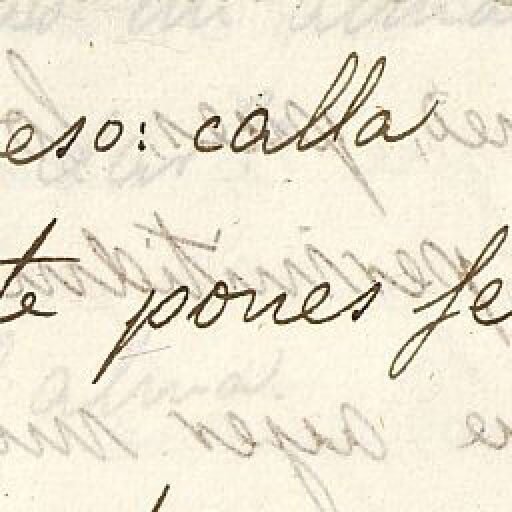 eso: calla
te pones fe